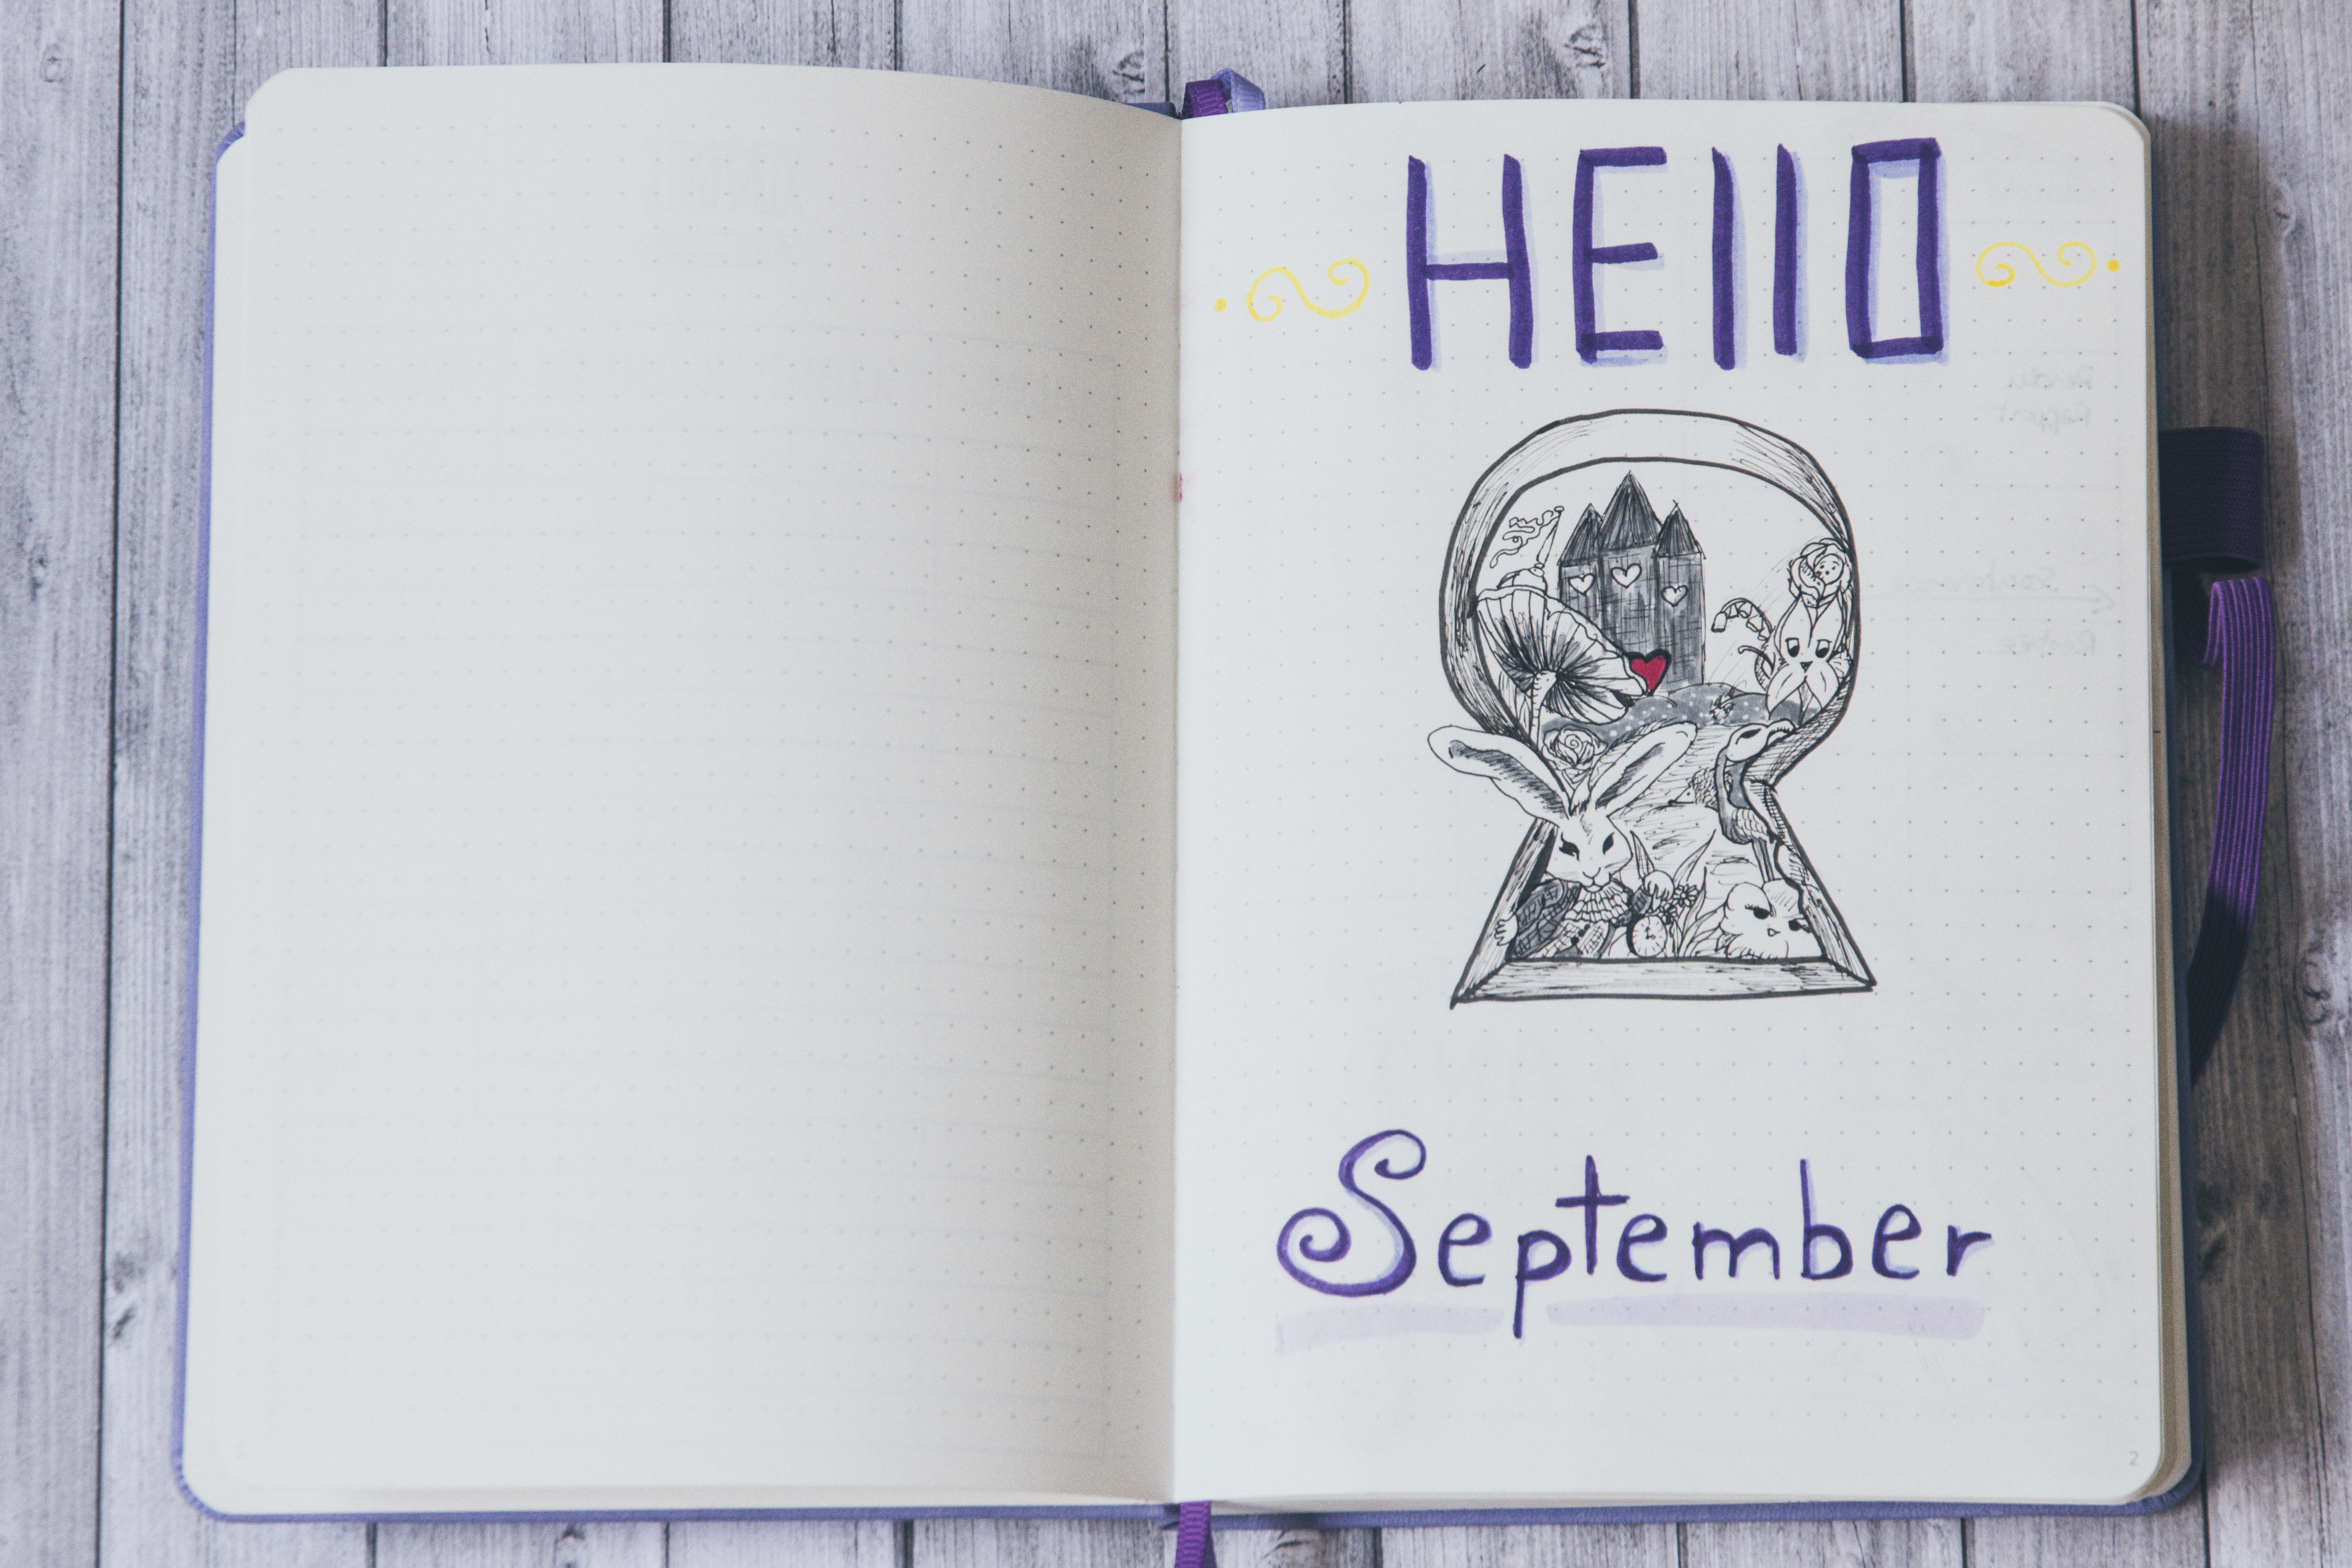 HEllO
September
2